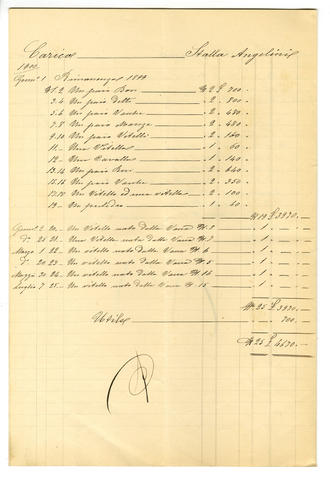 Carico Stalla Angelini
1900
Genn. 1 Rimanenza 1899
N. 1.2 Un paio Bovi N. 2 £ 700.-
3.4 Un paio detti " 2 " 800.-
5.6 Un paio Vacche " 2 " 480.-
7.8 Un paio Manze " 2 " 480.-
9.10 Un paio Vitelli " 2 " 160.-
11.- Una Vitella " 1 " 60.-
12.- Una Cavalla " 1 " 140.-
13.14 Un paio Bovi " 2 " 640.-
15.16 Un paio Vacche " 2 " 350.-
17.18 Un Vitello ed una vitella " 2 " 100.-
19.- Un puledro " 1 " 60.-
N. 19 £ 3970.-
20.- Un Vitello nato dalla Vacca N. 8 " 1 "
21.- Una Vitella nata dalla Vacca N. 7 " 1 "
22.- Un vitello nato dalla Vacca N. 6 " 1 "
23.- Un Vitello nato dalla Vacca N. 5 " 1 "
24.- Un vitello nato dalla Vacca N. 16 " 1 "
Luglio 7 25.- Un vitello nato dalla Vacca N. 15 " 1 "
N. 25 £ 3970.-
Utile 700.-
N. 25 £ 4670.-